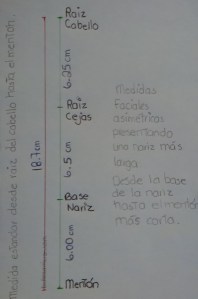 Medida estándar desde raiz del cabello hasta el mentón.
18.7 cm
Raiz
Cabello
6.25 cm
Raiz
Cejas
6.5 cm
Base
Nariz
6.00 cm
Mentón
Medidas
faciales
asimetricas
presentando
una nariz más
larga
Desde la base
de la nariz
hasta el mentón
más corta.